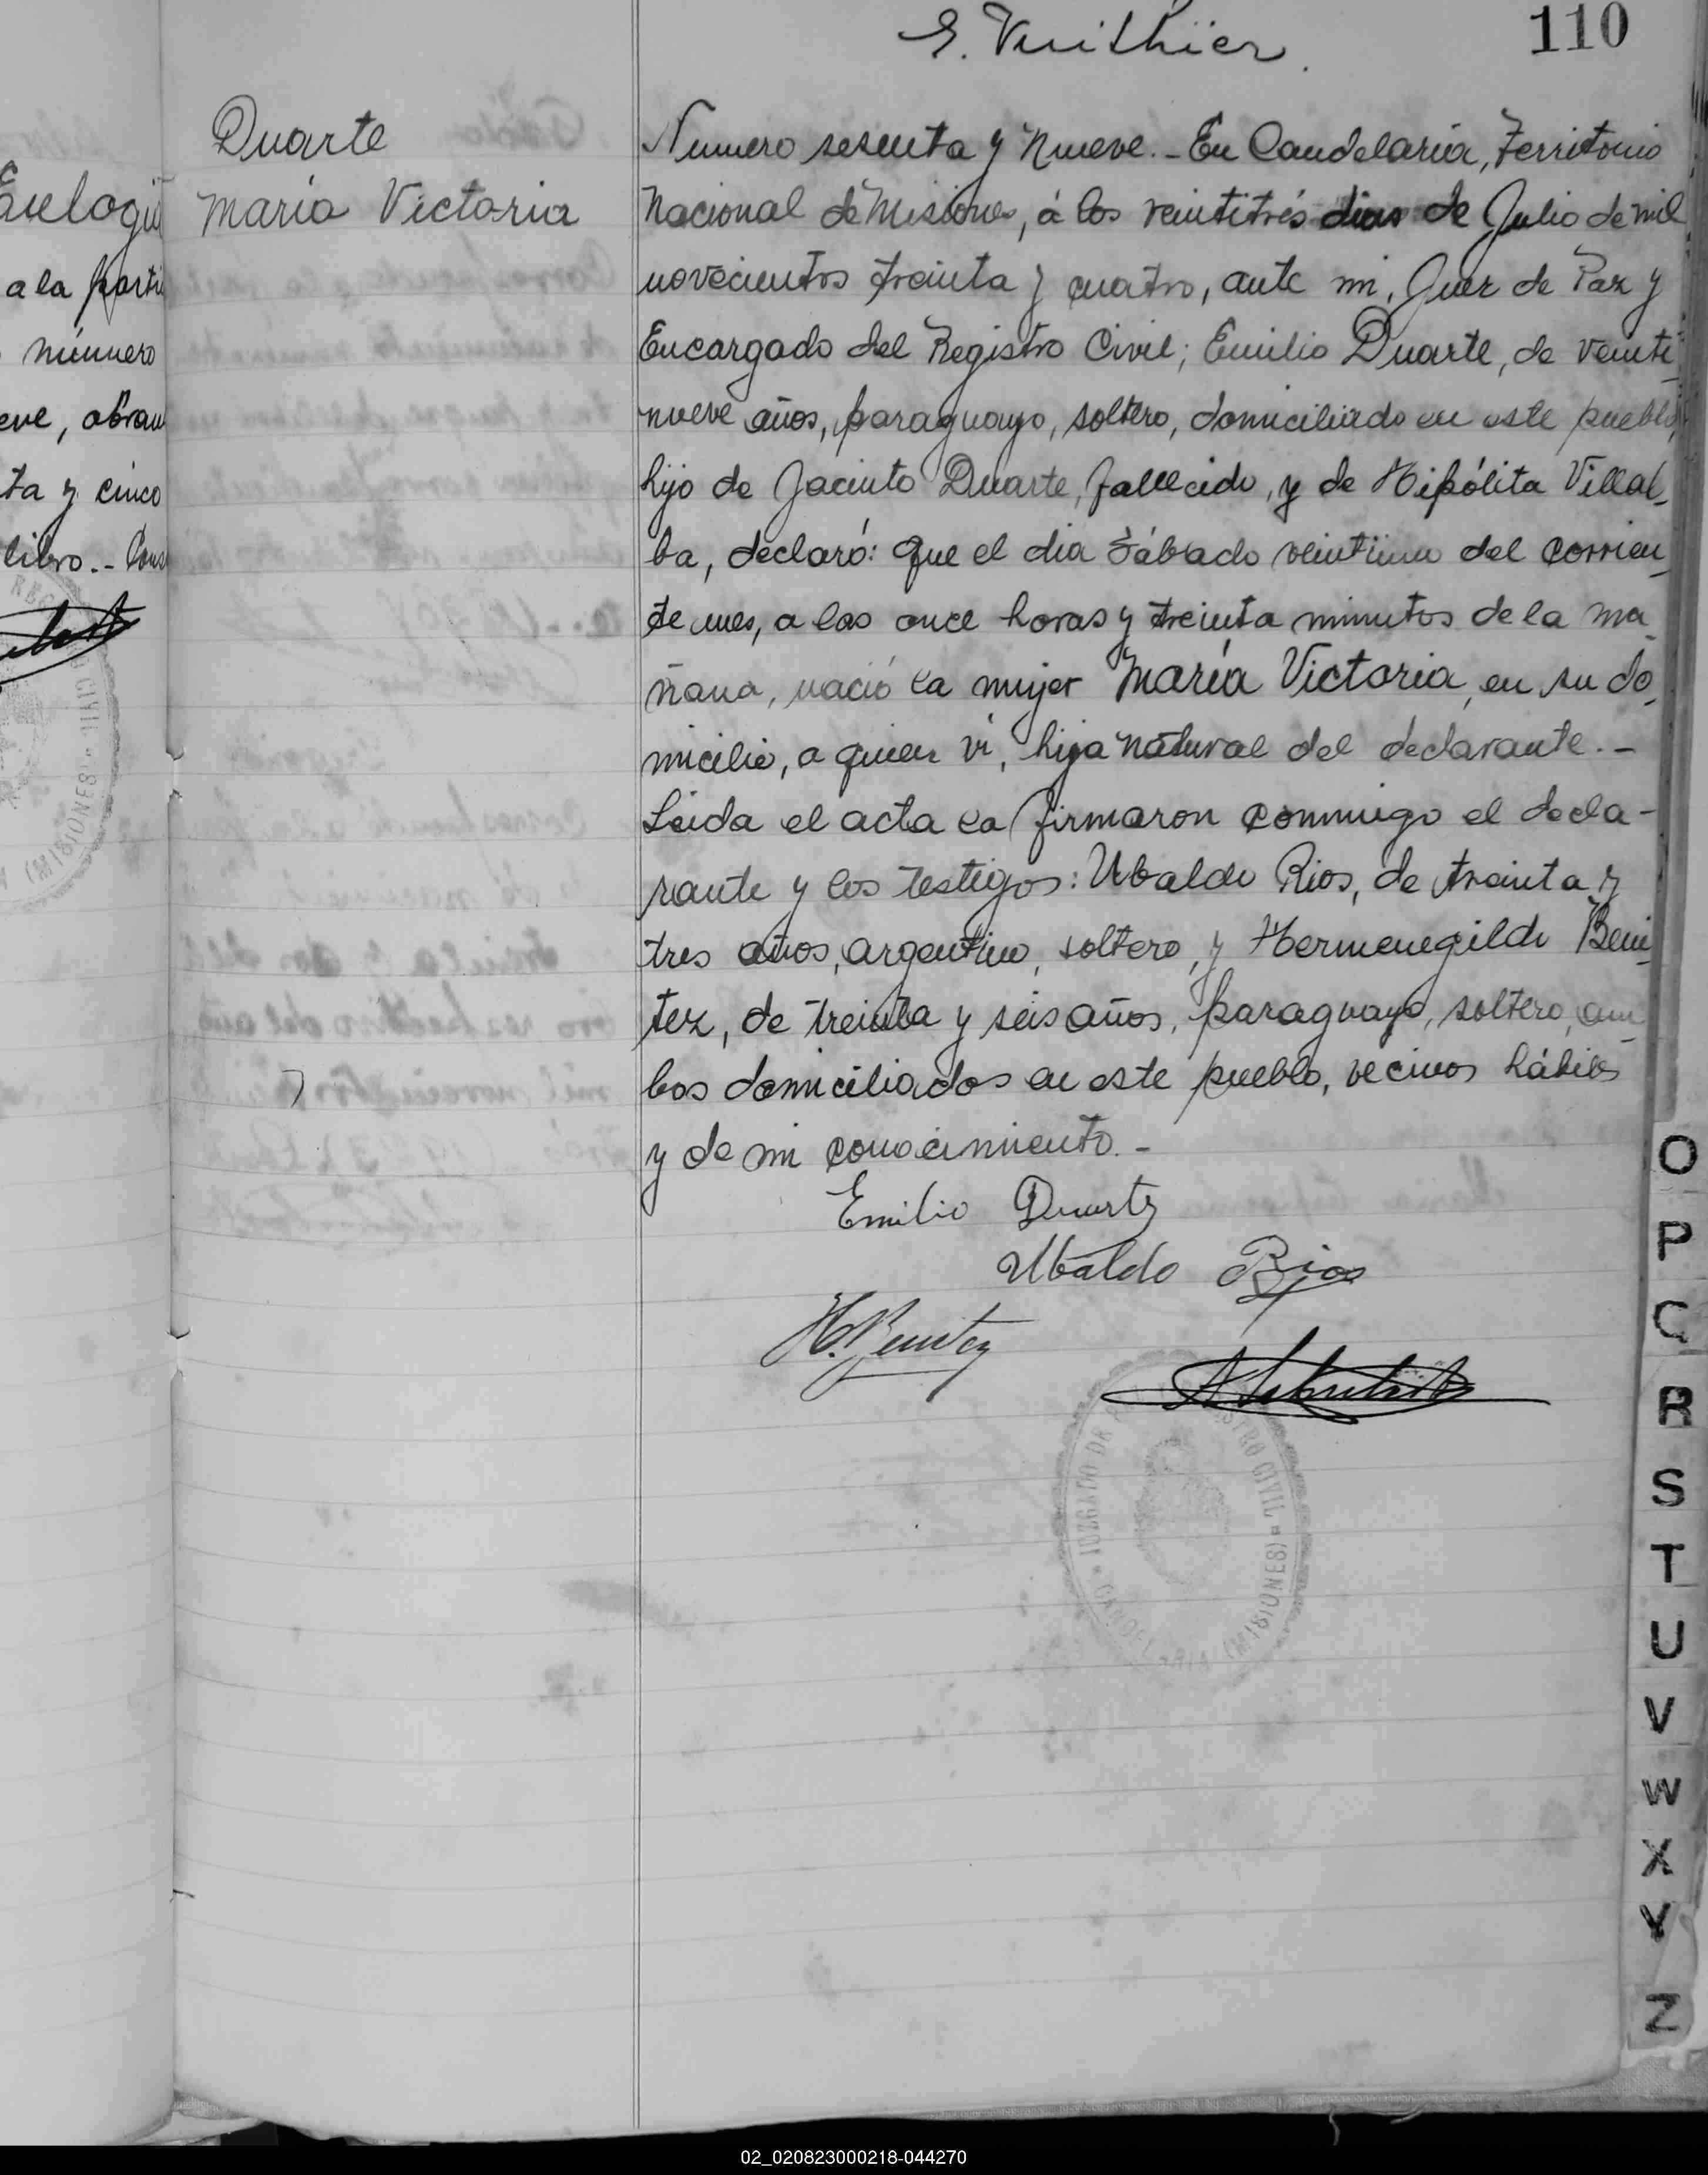 E. Vuithier
110
Duarte
María Victoria
Eulogi
a la parti
número
eve, obran
ta y cinco
libro.- Cons
Numero sesenta y nueve.- En Candelaria, Territorio
Nacional de Misiones, á los veintitrés dias de Julio de mil
novecientos treinta y cuatro, ante mi, Juez de Paz y
Encargado del Registro Civil; Emilio Duarte, de veinti-
nueve años, paraguayo, soltero, domiciliado en este pueblo,
hijo de Jacinto Duarte, fallecido, y de Hipólita Villal-
ba, declaró: que el dia Sábado veintiuno del corrien-
te mes, a las once horas y treinta minutos de la ma-
ñana, nació la mujer María Victoria, en su do-
micilio, a quien vi, hija natural del declarante.-
Leida el acta la firmaron conmigo el decla-
rante y los testigos: Ubaldo Rios, de treinta y
tres años, argentino, soltero, y Hermenegildo Beni-
tez, de treinta y seis años, paraguayo, soltero, am-
bos domiciliados en este pueblo, vecinos hábiles
y de mi conocimiento.-
Emilio Duarte
Ubaldo Rios
H. Benitez
JUZGADO DE
REGISTRO CIVIL
CANDELARIA (MISIONES)
O
P
Q
R
S
T
U
V
W
X
Y
Z
02_020823000218-044270